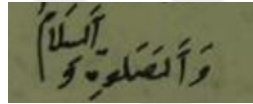 وَٱلصَلوةِ وَ
ٱلسَلاَمُ